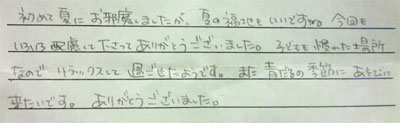 初めて夏にお邪魔しましたが、夏の福地もいいですね。今回も
いろいろ配慮して下さってありがとうございました。子どもも慣れた場所
なのでリラックスして過ごせたようです。また青だるの季節にあそびに
来たいです。ありがとうございました。